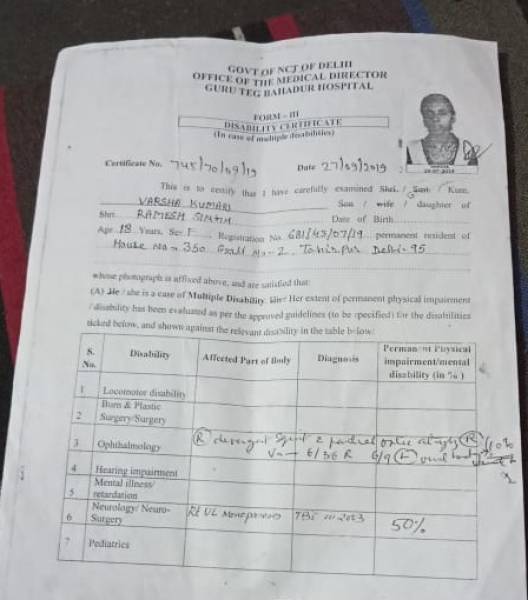 GOVT OF NCT OF DELHI
OFFICE OF THE MEDICAL DIRECTOR
GURU TEG BAHADUR HOSPITAL
FORM - III
DISABILITY CERTIFICATE
(In case of multiple disabilities)
Certificate No. 745/70/09/19 Date 27/09/2019
This is to certify that I have carefully examined Shri. / Smt. / Kum.
VARSHA KUMARI Son / wife / daughter of
Shri. RAMESH Date of Birth
Age 18 Years, Sex F Registration No. 681/43/07/19 permanent resident of
House No - 350 Gali No - 2, Tahirpur Delhi-95
whose photograph is affixed above, and are satisfied that:
(A) He / she is a case of Multiple Disability. His / Her extent of permanent physical impairment
/ disability has been evaluated as per the approved guidelines (to be specified) for the disabilities
ticked below, and shown against the relevant disability in the table below:
S. No. Disability Affected Part of Body Diagnosis Permanent Physical impairment/mental disability (in %)
1 Locomotor disability
2 Burn & Plastic Surgery/Surgery
3 Ophthalmology (R) divergent Squint partial optic atrophy (R)
Vn - 6/36 R 6/9 (L)
4 Hearing impairment
5 Mental illness/ retardation
6 Neurology/ Neuro-Surgery Rt UL Monoparesis TBI in 2003 50%
7 Pediatrics